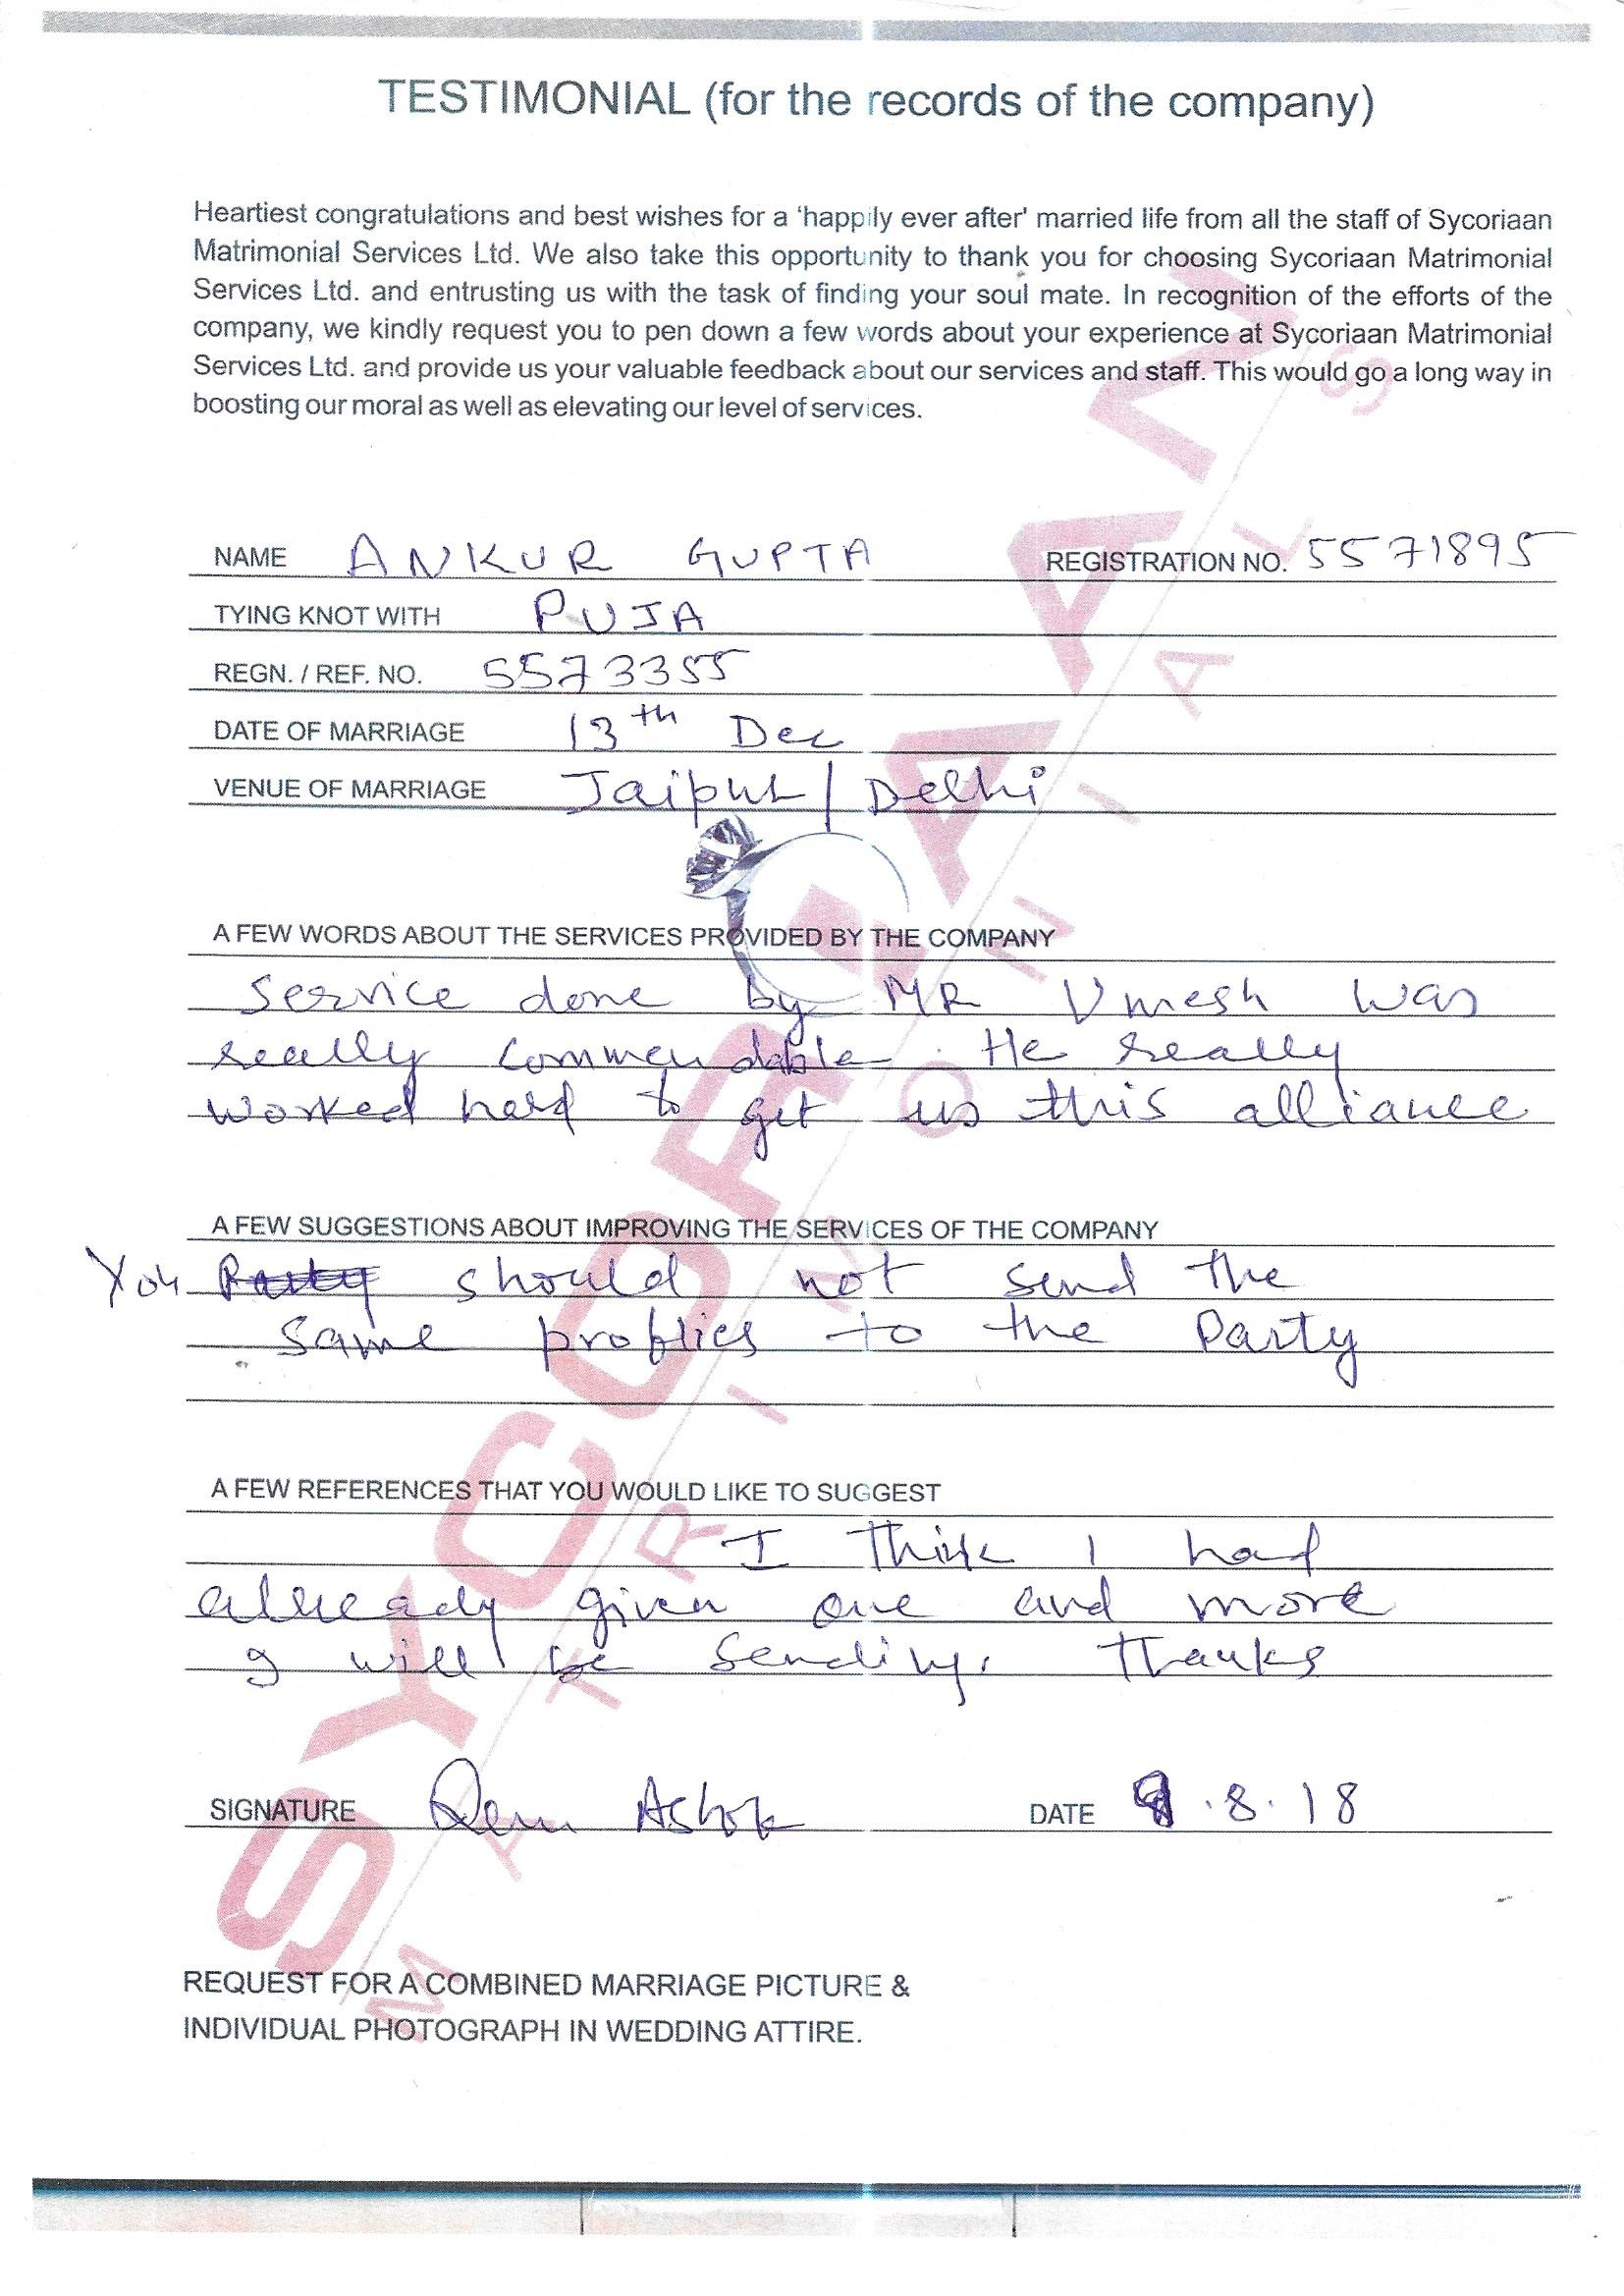 TESTIMONIAL (for the records of the company)
Heartiest congratulations and best wishes for a 'happily ever after' married life from all the staff of Sycoriaan
Matrimonial Services Ltd. We also take this opportunity to thank you for choosing Sycoriaan Matrimonial
Services Ltd. and entrusting us with the task of finding your soul mate. In recognition of the efforts of the
company, we kindly request you to pen down a few words about your experience at Sycoriaan Matrimonial
Services Ltd. and provide us your valuable feedback about our services and staff. This would go a long way in
boosting our moral as well as elevating our level of services.
NAME ANKUR GUPTA REGISTRATION NO. 5571895
TYING KNOT WITH PUJA
REGN. / REF. NO. 5573355
DATE OF MARRIAGE 13th Dec
VENUE OF MARRIAGE Jaipur / Delhi
A FEW WORDS ABOUT THE SERVICES PROVIDED BY THE COMPANY
Service done by MR Umesh was
really commendable. He really
worked hard to get us this alliance
A FEW SUGGESTIONS ABOUT IMPROVING THE SERVICES OF THE COMPANY
You Party should not send the
Same proflies to the Party
A FEW REFERENCES THAT YOU WOULD LIKE TO SUGGEST
I Think I had
already given one and more
I will be sending. Thanks
SIGNATURE Ashok DATE 9.8.18
REQUEST FOR A COMBINED MARRIAGE PICTURE &
INDIVIDUAL PHOTOGRAPH IN WEDDING ATTIRE.
SYCORIAAN
MATRIMONIALS